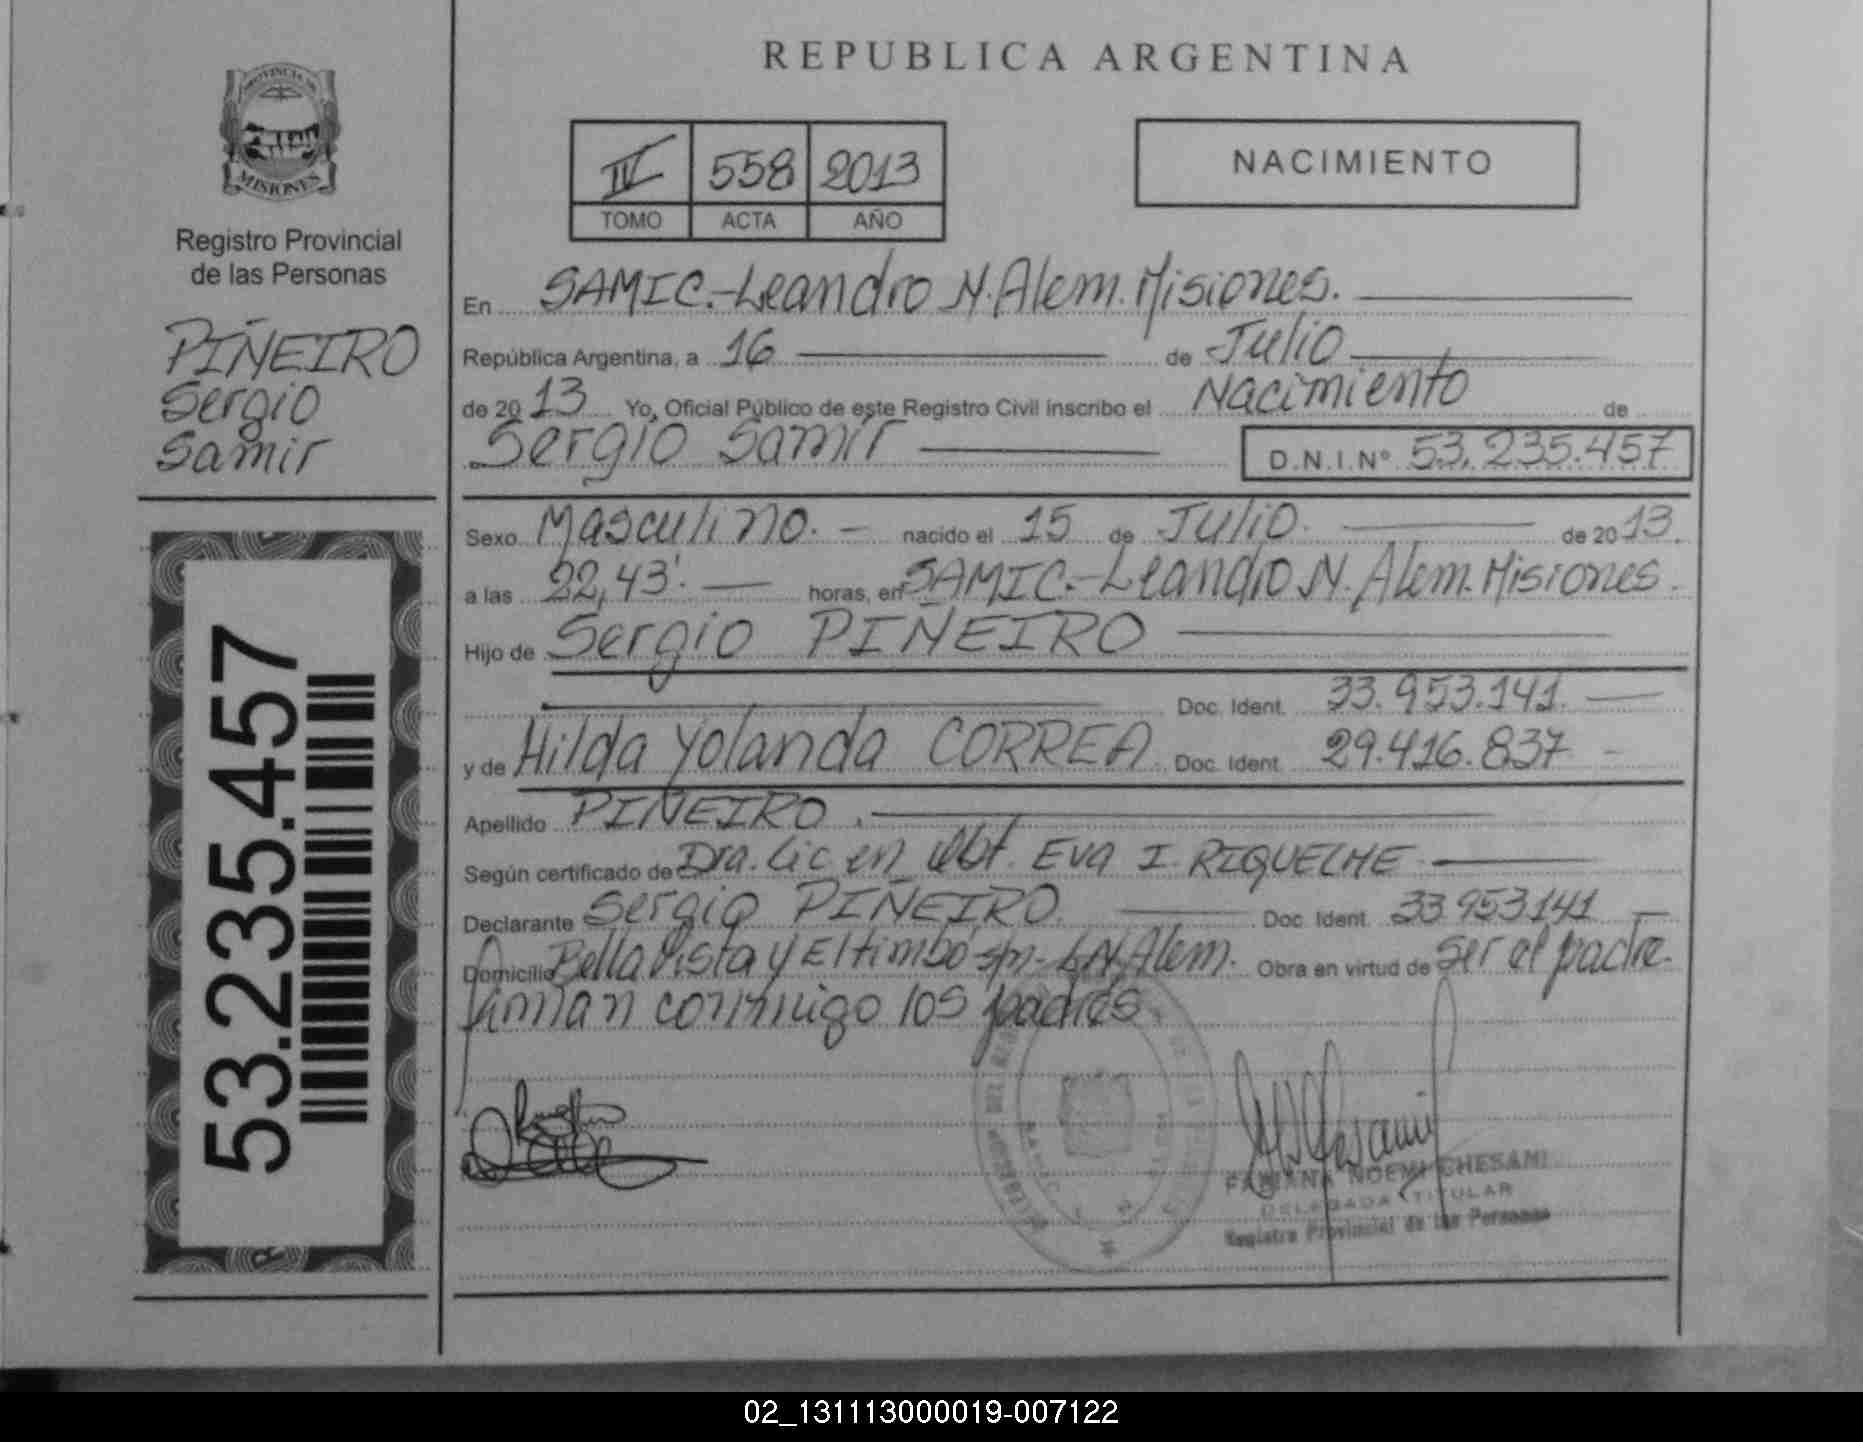 REPUBLICA ARGENTINA
PROVINCIA DE
MISIONES
Registro Provincial
de las Personas
PIÑEIRO
Sergio
Samir
53.235.457
IV 558 2013
TOMO ACTA AÑO
NACIMIENTO
En SAMIC.-Leandro N. Alem. Misiones.
República Argentina, a 16 de Julio
de 2013 Yo, Oficial Público de este Registro Civil inscribo el Nacimiento de
Sergio Samir D.N.I.Nº 53.235.457
Sexo Masculino.- nacido el 15 de Julio. de 2013.
a las 22,43'. horas, en SAMIC.-Leandro N. Alem. Misiones.
Hijo de Sergio PIÑEIRO
Doc. Ident. 33.953.141.
y de Hilda Yolanda CORREA. Doc. Ident. 29.416.837
Apellido PIÑEIRO.
Según certificado de Dra. Lic en Obt. EVA I. RIQUELME
Declarante Sergio PIÑEIRO. Doc. Ident. 33953141
Domicilio Bella Vista y El timbó s/n- L.N. Alem. Obra en virtud de ser el padre.
firman conmigo los padres
FABIANA NOEMI CHESANI
DELEGADA TITULAR
Registro Provincial de las Personas
02_131113000019-007122